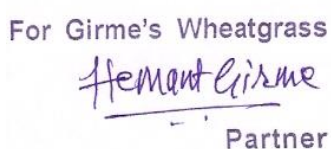 For Girme's Wheatgrass
Hemant Girme
Partner